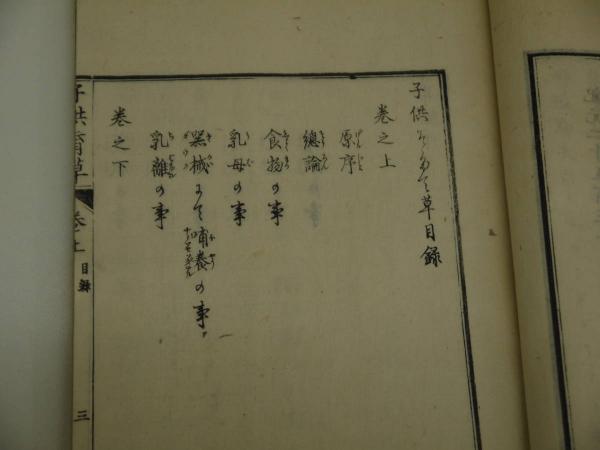 子供そだて草目録
巻之上
原序
總論
食物の事
乳母の事
器械にて哺養の事
乳離の事
巻之下
子供育草 巻之上 目録 三